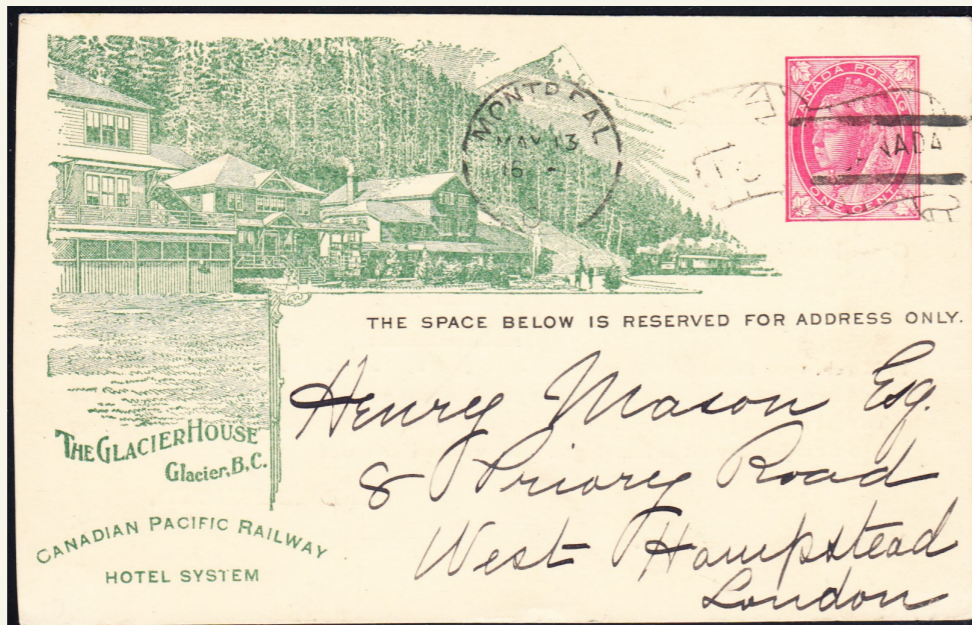 CANADA POSTAGE
ONE CENT
MONTREAL
MAY 13
16
THE SPACE BELOW IS RESERVED FOR ADDRESS ONLY.
Henry Mason Esq.
8 Priory Road
West Hampstead
London
THE GLACIER HOUSE
Glacier, B.C.
CANADIAN PACIFIC RAILWAY
HOTEL SYSTEM